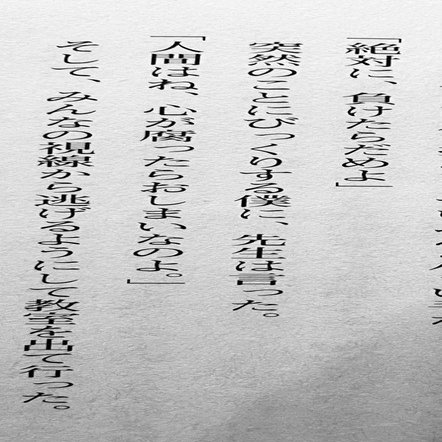 「絶対に、負けたらだめよ」
突然のことにびっくりする僕に、先生は言った。
「人間はね、心が腐ったらおしまいなのよ。」
そして、みんなの視線から逃げるようにして教室を出て行った。